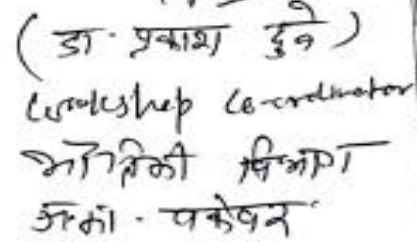 (डा. प्रकाश दुबे)
Workshop Co-ordinator
भौतिकी विभाग